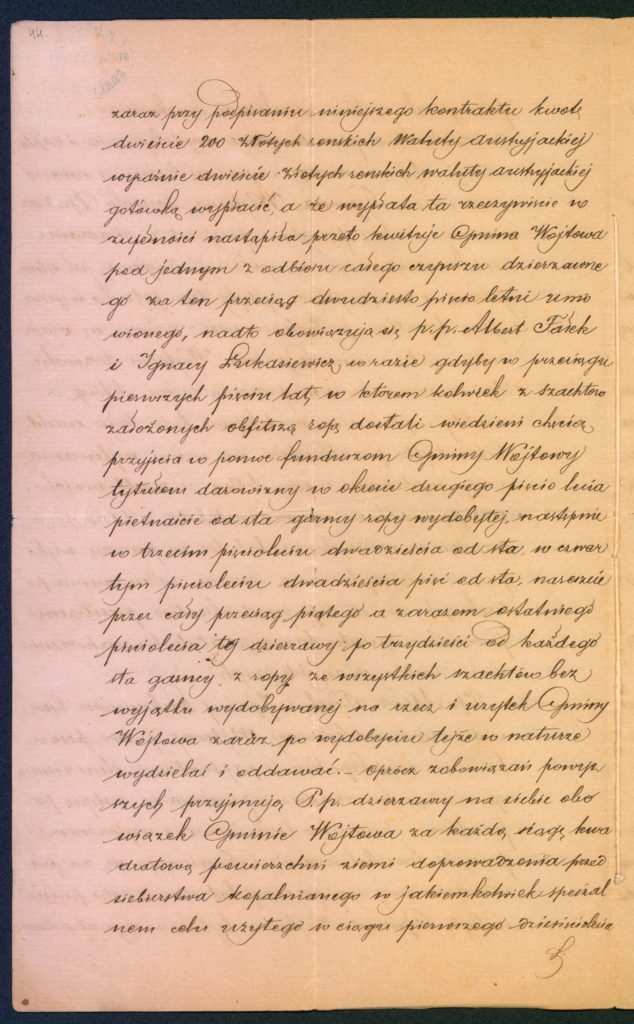 44.
zaraz przy podpisaniu niniejszego kontraktu kwotę
dwieście 200 złotych renskich waluty austryjackiej
wyraźnie dwieście złotych renskich waluty austryjackiej
gotówką wypłacić, a że wypłata ta rzeczywiście w
zupełności nastąpiła przeto kwituje Gmina Wójtowa
pod jednym z odbioru całego czynszu dzierzawne
go za ten przeciąg dwudziesto piecio letni umo
wionego, nadto obowiązują się p.p. Albert Fałek
i Ignacy Łukasiewicz, w razie gdyby w przeciągu
pierwszych pięciu lat, w którem kolwiek z szachtów
założonych obfitszą ropę dostali wiedzieni chęcią
przyjścia w pomoc funduszom Gminy Wójtowy
tytułem darowizny w okresie drugiego piecio lecia
piętnaście od sta górncy ropy wydobytej, następnie
w trzecim pięcioleciu dwadzieścia od sta, w czwar
tym pięcioleciu dwadzieścia pięć od sta, nareszcie
przez cały przeciąg piątego a zarazem ostatniego
pięciolecia tej dzierzawy po trzydzieści od każdego
sta garncy z ropy ze wszystkich szachtów bez
wyjątku wydobywanej na rzecz i uzytek Gminy
Wójtowa zaraz po wydobyciu tejże w naturze
wydzielać i oddawać. – Oprócz zobowiązań powyż
szych przyjmują P.p. dzierzawcy na siebie obo
wiązek Gminie Wójtowa za każdą siągę kwa
dratową powierzchni ziemi do prowadzenia przed
siebierstwa kopalnianego w jakiemkolwiek specjal
nem celu użytego w ciągu pierwszego dziesięciolecia